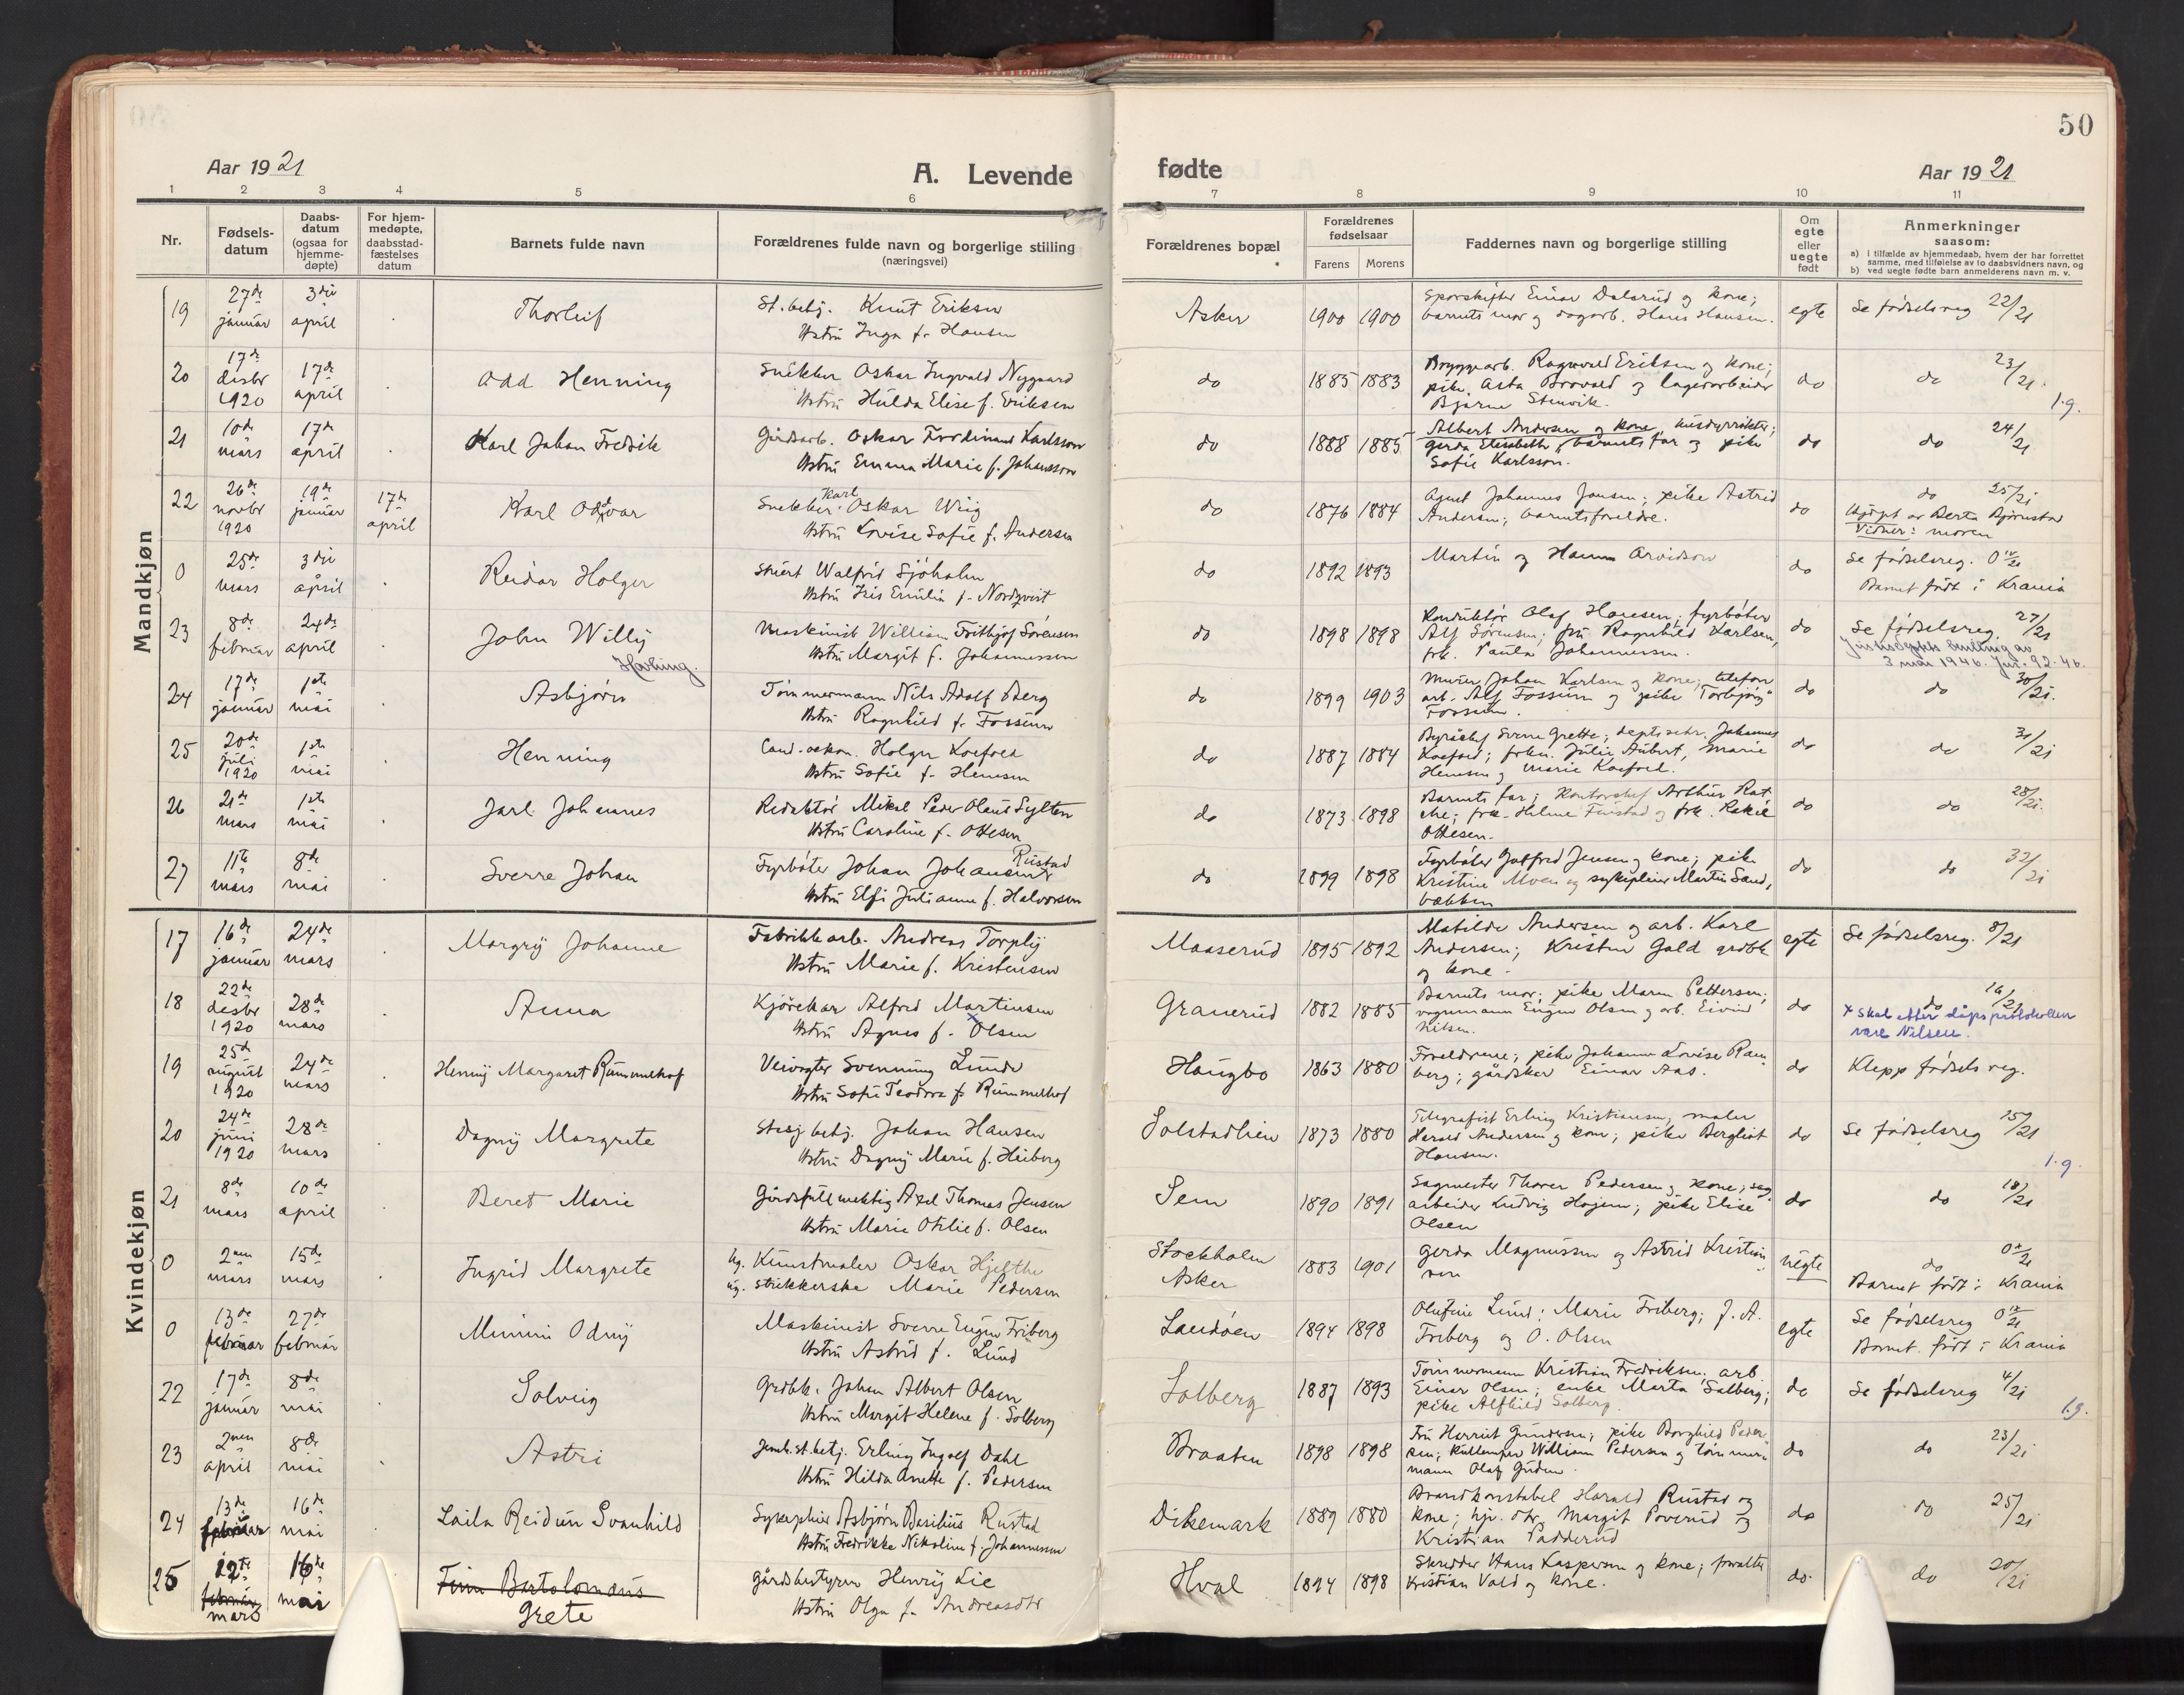 50
Aar 1921
A. Levende fødte
Aar 1921
1 2 3 4 5 6 7 8 9 10 11
Nr.
Fødsels-
datum
Daabs-
datum
(ogsaa for
hjemme-
døpte)
For hjem-
medøpte,
daabsstad-
fæstelses
datum
Barnets fulde navn
Forældrenes fulde navn og borgerlige stilling
(næringsvei)
Forældrenes bopæl
Forældrenes
fødselsaar
Farens Morens
Faddernes navn og borgerlige stilling
Om
egte
eller
uegte
født
Anmerkninger
saasom:
a) i tilfælde av hjemmedaab, hvem der har forrettet
samme, med tilføielse av to daabsvidners navn, og
b) ved uegte fødte barn anmelderens navn m. v.
Mandkjøn
19 27de januar 3die april Thorleif
St.betj. Knut Eriksen
Hstru Inga f. Hansen
Asker 1900 1900
Sporskifter Einar Dalsrud og kone;
barnets mor og dagarb. Hans Hansen.
egte Se fødselsreg 22/21
20 17de desbr 1920 17de april Odd Henning
Snekker Oskar Ingvald Nygaard
Hstru Hulda Elise f. Eriksen
do 1885 1883
Bryggarb. Ragnvald Eriksen og kone;
pike Asta Brovald og lagerarbeider
Bjarne Stenvik.
do do 23/21.
1.g.
21 10de mars 17de april Karl Johan Fredrik
Gårdsarb. Oskar Ferdinand Karlsson
Hstru Emma Marie f. Johansson
do 1888 1885
Albert Andersen og kone, husdyrrøkter;
Gerda Elisabeth, barnets far og pike
Sofie Karlsson.
do do 24/21
22 26de novbr 1920 19de januar 17de april Karl Oddvar
Snekker Karl Oskar Wiig
Hstru Lovise Sofie f. Andersen
do 1876 1884
Agent Johannes Jansen; pike Astrid
Andersen; barnets foreldre.
do do 25/21
Hjdøpt av Berta Bjørnstad
Vidner: moren
0 25de mars 3die april Reidar Holger
Stuert Walfrid Sjöholm
Hstru Iris Emilia f. Nordqvist
do 1892 1893
Martin og Hanna Arvidson
do Se fødselsreg. 0
Barnet født i Krania
23 8de februar 24de april John Willy
Hovling.
Maskinist William Frithjof Sörensen
Hstru Margit f. Johannessen
do 1898 1898
Konduktør Olaf Hansen; fyrbøter
Alf Sörensen; fru Ragnhild Karlsen,
frk. Paula Johannessen.
do Se fødselsreg. 27/21
3 mai 1946. Jnr. 92.46.
24 17de januar 1ste mai Asbjørn
Tømmermann Nils Adolf Berg
Hstru Ragnhild f. Fossum
do 1899 1903
Murer Johan Karlsen og kone; telefon
arb. Alf Fossum og pike Torbjørg
Fossum.
do do 30/21.
25 20de juli 1920 1ste mai Henning
Cand. oekon. Holger Koefoed
Hstru Sofie f. Hemsen
do 1887 1884
Byråchef Sverre Grette; dept.sekr. Johannes
Koefoed; frkn. Julie Aubert, Marie
Hemsen og Marie Koefoed.
do do 31/21
26 21de mars 1ste mai Jarl Johannes
Redaktör Mikal Peder Olaus Sylten
Hstru Caroline f. Ottesen
do 1873 1898
Barnets far; kontorchef Arthur Rat
che; frk. Helene Finstad og frk. Rakel
Ottesen.
do do 28/21.
27 11te mars 8de mai Sverre Johan
Fyrbøter Johan Johansen Rustad
Hstru Elfi Julianne f. Halvorsen
do 1899 1898
Fyrbøter Gotfred Jensen og kone; pike
Kristine Moen og sykepleier Martin Sand,
bækken
do do 32/21
Kvindekjøn
17 16de januar 24de mars Margry Johanne
Fabrikkarb. Andreas Torply
Hstru Marie f. Kristensen
Maaserud 1895 1892
Matilde Andersen og arb. Karl
Andersen; Kristen Gald grdbk
og kone.
egte Se fødselsreg. 8/21
18 22de desbr 1920 28de mars Anna
Kjørekar Alfred Martinsen
Hstru Agnes f. x Olsen
Granerud 1882 1885
Barnets mor; pike Maren Pettersen;
vognmann Eugen Olsen og arb. Eivind
Nilsen.
do do 16/21
x Skal etter dåpsprotokollen
være Nilsen.
19 25de august 1920 24de mars Henny Margaret Rummelhof
Veivogter Svenning Lunde
Hstru Sofie Teodora f. Rummelhof
Haugbo 1863 1880
Foreldrene; pike Johanne Lovise Ram
berg; gårdskar Einar Aas.
do Klepp fødselsreg.
20 24de juni 1920 28de mars Dagny Margrete
Stasj.betj. Johan Hansen
Hstru Dagny Marie f. Heiberg
Solstadlien 1873 1880
Telegrafist Erling Kristiansen, maler
Harald Andersen og kone; pike Bergliot
Hansen.
do Se fødselsreg 15/21
1.g.
21 8de mars 10de april Beret Marie
Gårdsfullmektig Axel Thomas Jensen
Hstru Marie Otilie f. Olsen
Sem 1890 1891
Sagmester Thorer Pedersen og kone; sag
arbeider Ludvig Hojem; pike Elise
Olsen
do do 18/21
0 2nen mars 15de mars Ingrid Margrete
Ug. Kunstmaler Oskar Hjelthe
ug. strikkerske Marie Pedersen
Stockholm
Asker
1883 1901
Gerda Magnussen og Astrid Kristian
sen
uegte do 0
Barnet født i Krania
0 13de februar 27de februar Mimmi Odny
Maskinist Sverre Eugen Friberg
Hstru Astrid f. Lund
Landöen 1894 1898
Olufine Lund; Marie Friberg; J. A.
Friberg og O. Olsen
egte Se fødselsreg 0
Barnet født i Krania
22 17de januar 8de mai Solveig
Grdbk. Johan Albert Olsen
Hstru Margit Helene f. Solberg
Solberg 1887 1893
Tømmermann Kristian Fredriksen; arb.
Einar Olsen; enke Marta Solberg;
pike Alfhild Solberg.
do Se fødselsreg 4/21
1.g.
23 2nen april 8de mai Astri
Jernb.st.betj. Erling Ingolf Dahl
Hstru Hilda Anette f. Pedersen
Braaten 1898 1898
Fru Harriet Gundersen; pike Borghild Peder
sen; kullemper William Pedersen og tømmer
mann Olaf Guden.
do do 23/21
24 13de februar 16de mai Laila Reidun Svanhild
Sykepleier Asbjørn Basilius Rustad
Hstru Fredrikke Nikoline f. Johannessen
Dikemark 1889 1880
Brandkonstabel Harald Rustad og
kone; hjv. dtr. Margit Poverud og
Kristian Padderud
do do 25/21
25 12te februar mars 16de mai Finn Bartolomæus
Grete
Gårdsbestyrer Henry Lie
Hstru Olga f. Andreasdtr
Hval 1894 1898
Skredder Hans Kaspersen og kone; forvalter
Kristian Vold og kone.
do. do 20/21